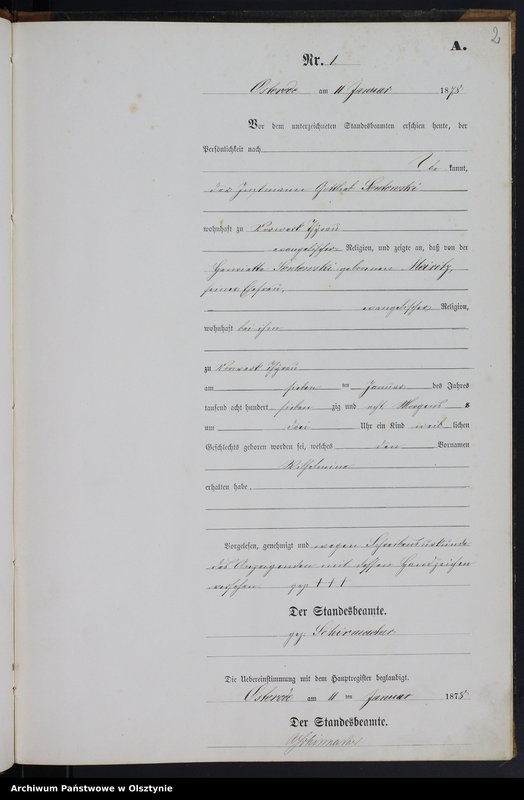 2
A.
Nr. 1
Osterode am 11 Januar 1878
Vor dem unterzeichneten Standesbeamten erschien heute, der
Persönlichkeit nach
kannt,
der Instmann Gottlieb
wohnhaft zu Vorwerk
evangelischer Religion, und zeigte an, daß von der
Henriette geborenen
seiner Ehefrau,
evangelischer Religion,
wohnhaft bei ihm
zu Vorwerk
am sieben ten Januar des Jahres
tausend acht hundert sieben zig und acht Morgens
um drei Uhr ein Kind weib lichen
Geschlechts geboren worden sei, welches den Vornamen
Wilhelmine
erhalten habe.
Vorgelesen, genehmigt und wegen Schreibensunkunde
des Anzeigenden mit dessen Handzeichen
versehen gez. +++
Der Standesbeamte.
gez. Schirmacher
Die Uebereinstimmung mit dem Hauptregister beglaubigt.
Osterode am 11 ten Januar 1878
Der Standesbeamte.
Schirmacher
Archiwum Państwowe w Olsztynie